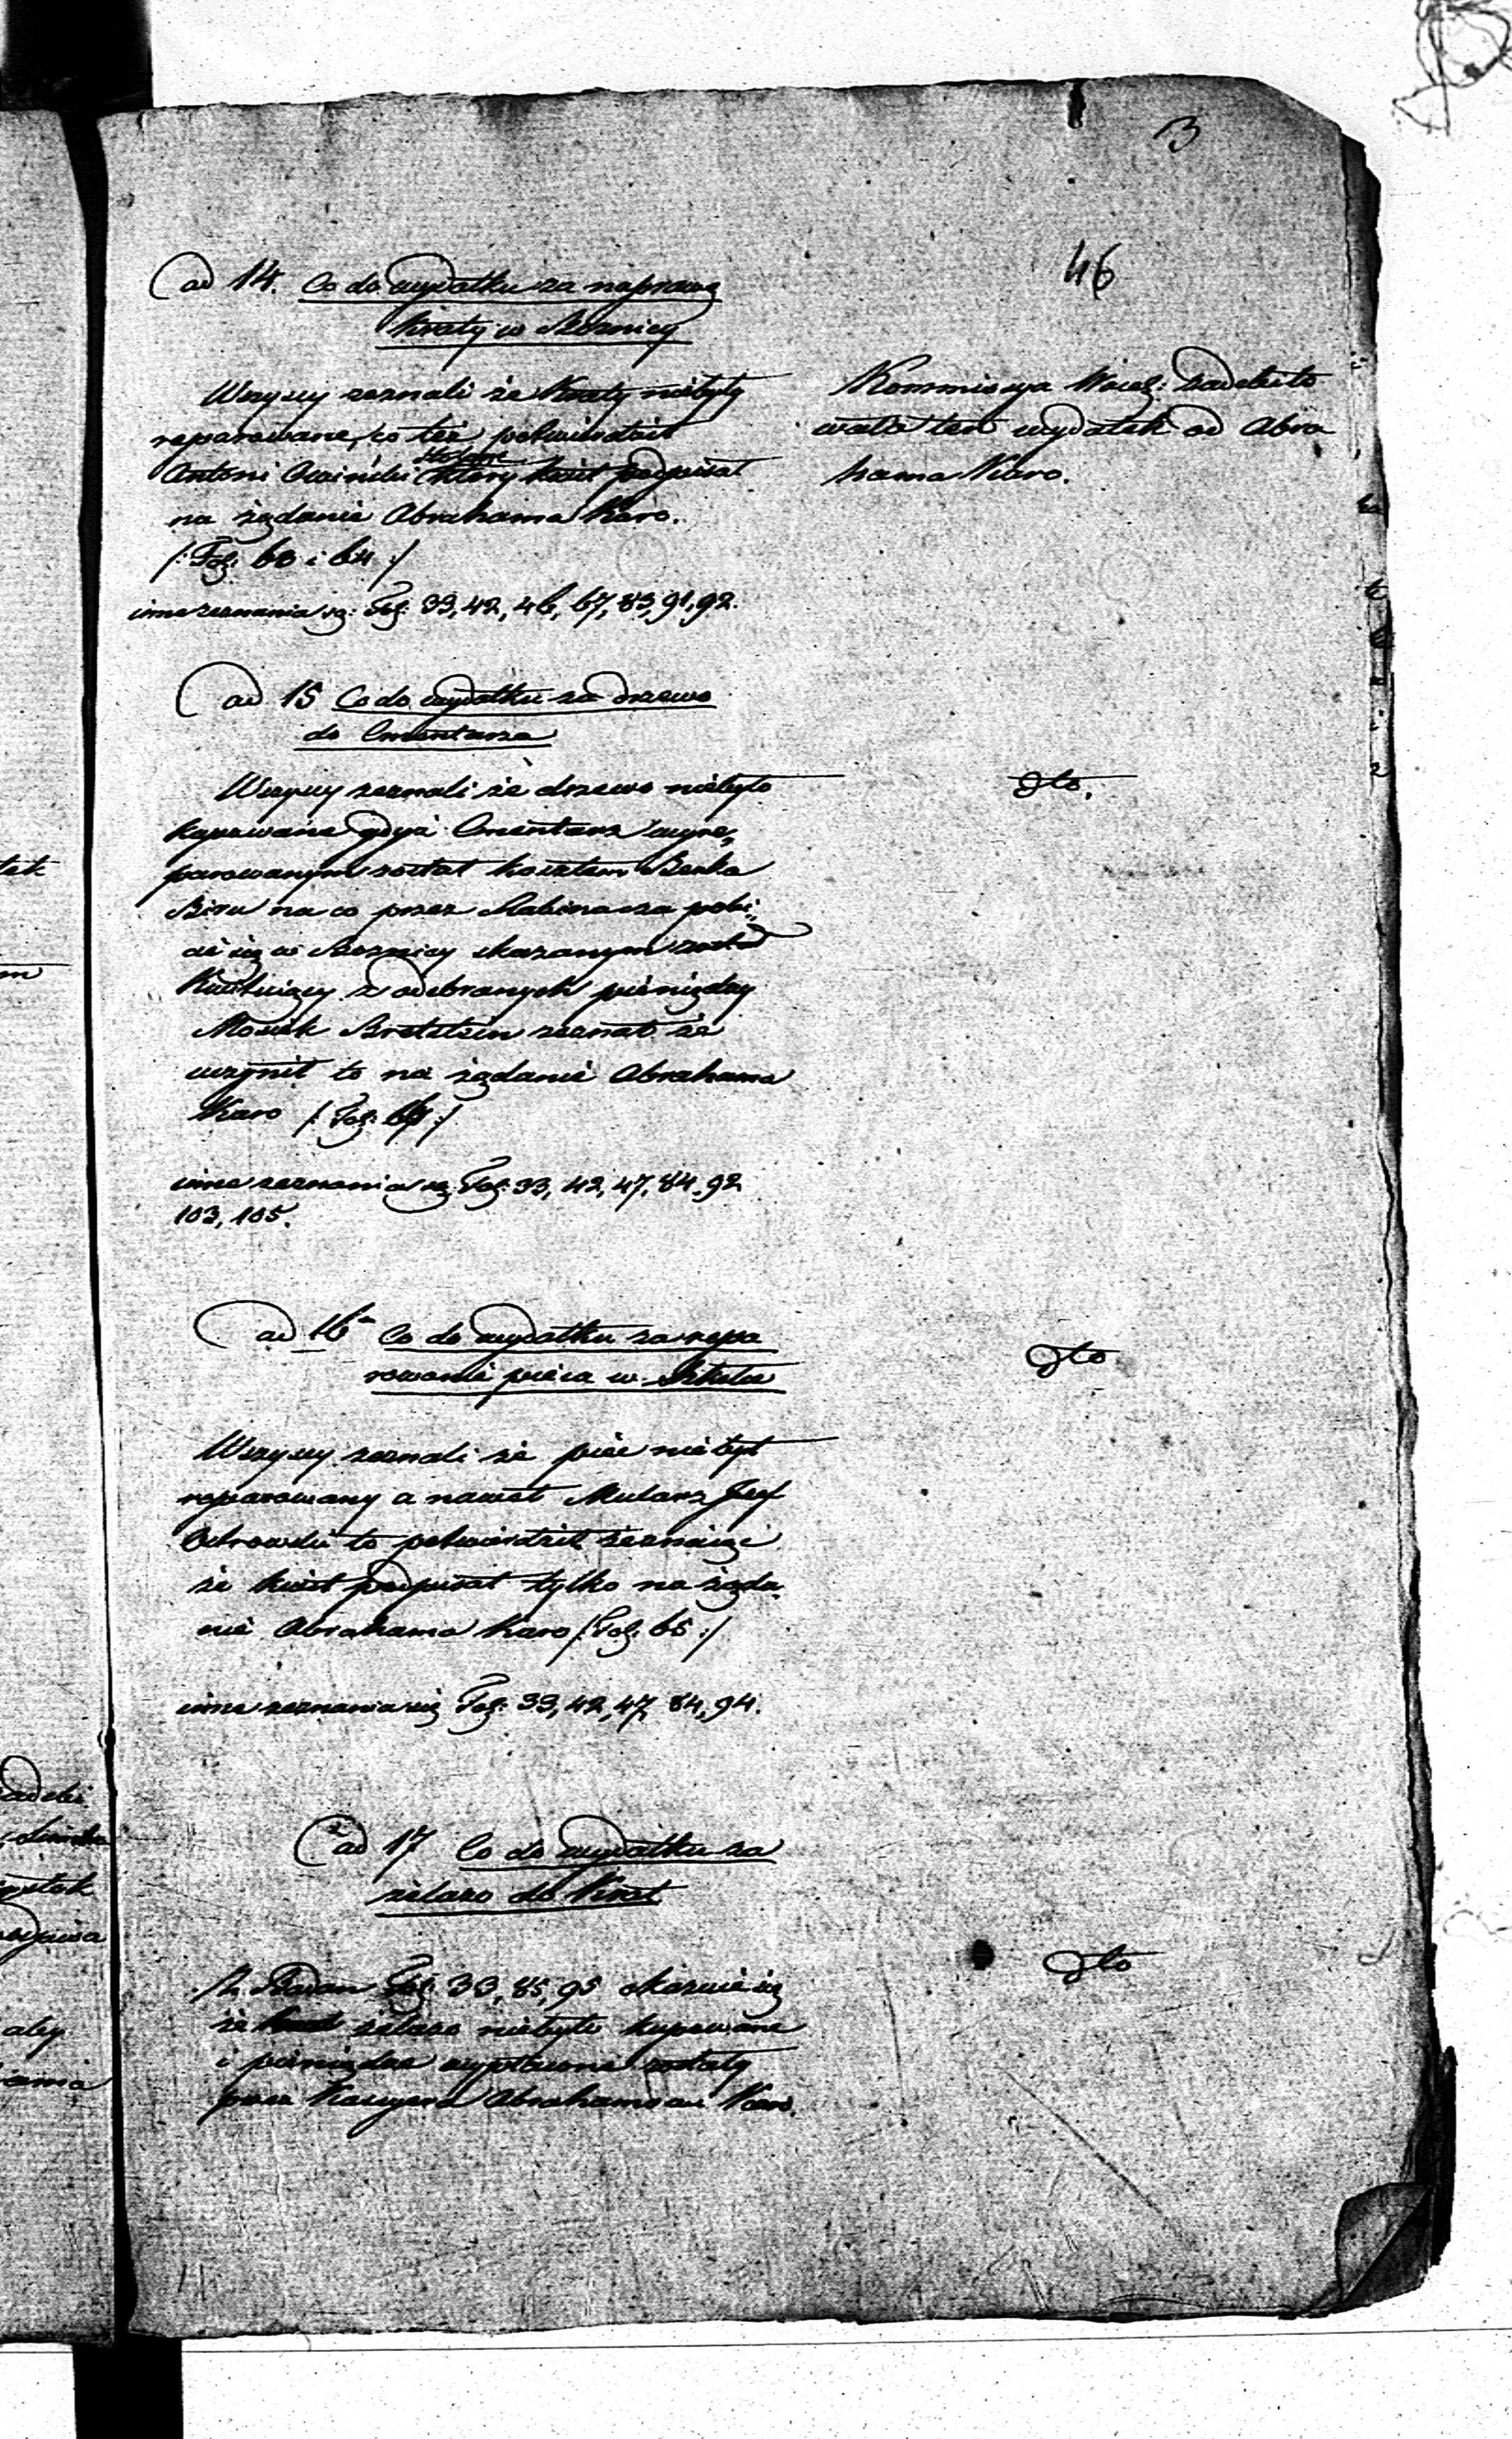 3
46
ad 14. Co do wydatku za naprawę
Kraty w Bożnicy
Wszyscy zeznali że Kraty niebyły
reparowane, co też potwierdził
Antoni stolarz
który kwit podpisał
na żądanie Abrahama Karo.
/: Fol: 63 i 64 :/
inne zeznania są: Fol: 33, 42, 46, 67, 83, 91, 92.
Kommissya Woiew: zadefekto
wała ten wydatek od Abra
hama Karo.
ad 15 Co do wydatku za drzewo
do Cmentarza
Wszyscy zeznali że drzewo niebyło
kupowane gdyż Cmentarz wyre„
parowanym został kosztem Berka
na co przez Rabina za pobi„
cie się w Bożnicy skazanym został
Kwituiący z odebranych pieniędzy
Mosiek zeznał że
uczynił to na żądanie Abrahama
Karo /: Fol: :/
inne zeznania są Fol: 33, 42, 47, 84, 92
103, 105.
dto.
ad 16 Co do wydatku za repa
rowanie pieca w Szkole
Wszyscy zeznali że piec nie był
reparowany a nawet Mularz Józef
to potwierdził zeznaiąc
że kwit podpisał tylko na żąda„
nie Abrahama Karo /: Fol: 65 :/
inne zeznania są Fol: 33, 42, 47, 84, 94.
dto
ad 17 Co do wydatku za
żelazo do Krat
Z Badań Fol: 33, 85, 95 okazuie się
że żelazo niebyło kupowane
i pieniądze wypłacone zostały
przez Kassyera Abrahamowi Karo.
dto